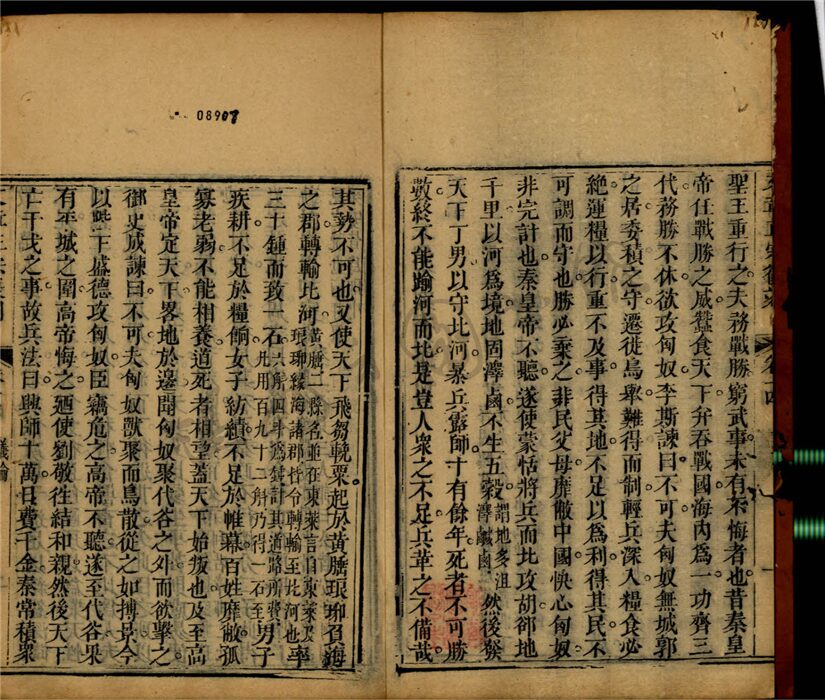 08907
聖王重行之夫務戰勝窮武事未有不悔者也昔秦皇
帝任戰勝之威蠶食天下幷吞戰國海內為一功齊三
代務勝不休欲攻匈奴李斯諫曰不可夫匈奴無城郭
之居委積之守遷徙鳥舉難得而制輕兵深入糧食必
絕運糧以行重不及事得其地不足以為利得其民不
可調而守也勝必棄之非民父母靡敝中國快心匈奴
非完計也秦皇帝不聽遂使蒙恬將兵而北攻胡卻地
千里以河為境地固澤鹵不生五穀謂地多沮澤鹹鹵然後發
天下丁男以守北河暴兵露師十有餘年死者不可勝
數終不能踰河而北是豈人衆之不足兵革之不備哉
其勢不可也又使天下飛芻輓粟起於黃腄琅琊負海
之郡轉輸北河黃腄二縣名並在東萊言自東萊及琅琊緣海諸郡皆令轉輸至北河也率
三十鍾而致一石六斛四斗為鍾計其道路所費凡用百九十二斛乃得一石至男子
疾耕不足於糧餉女子紡績不足於帷幕百姓靡敝孤
寡老弱不能相養道死者相望蓋天下始叛也及至高
皇帝定天下畧地於邊聞匈奴聚代谷之外而欲擊之
御史成諫曰不可夫匈奴獸聚而鳥散從之如搏景今
以陛下盛德攻匈奴臣竊危之高帝不聽遂至代谷果
有平城之圍高帝悔之廼使劉敬往結和親然後天下
亡干戈之事故兵法曰興師十萬日費千金秦常積衆
議論